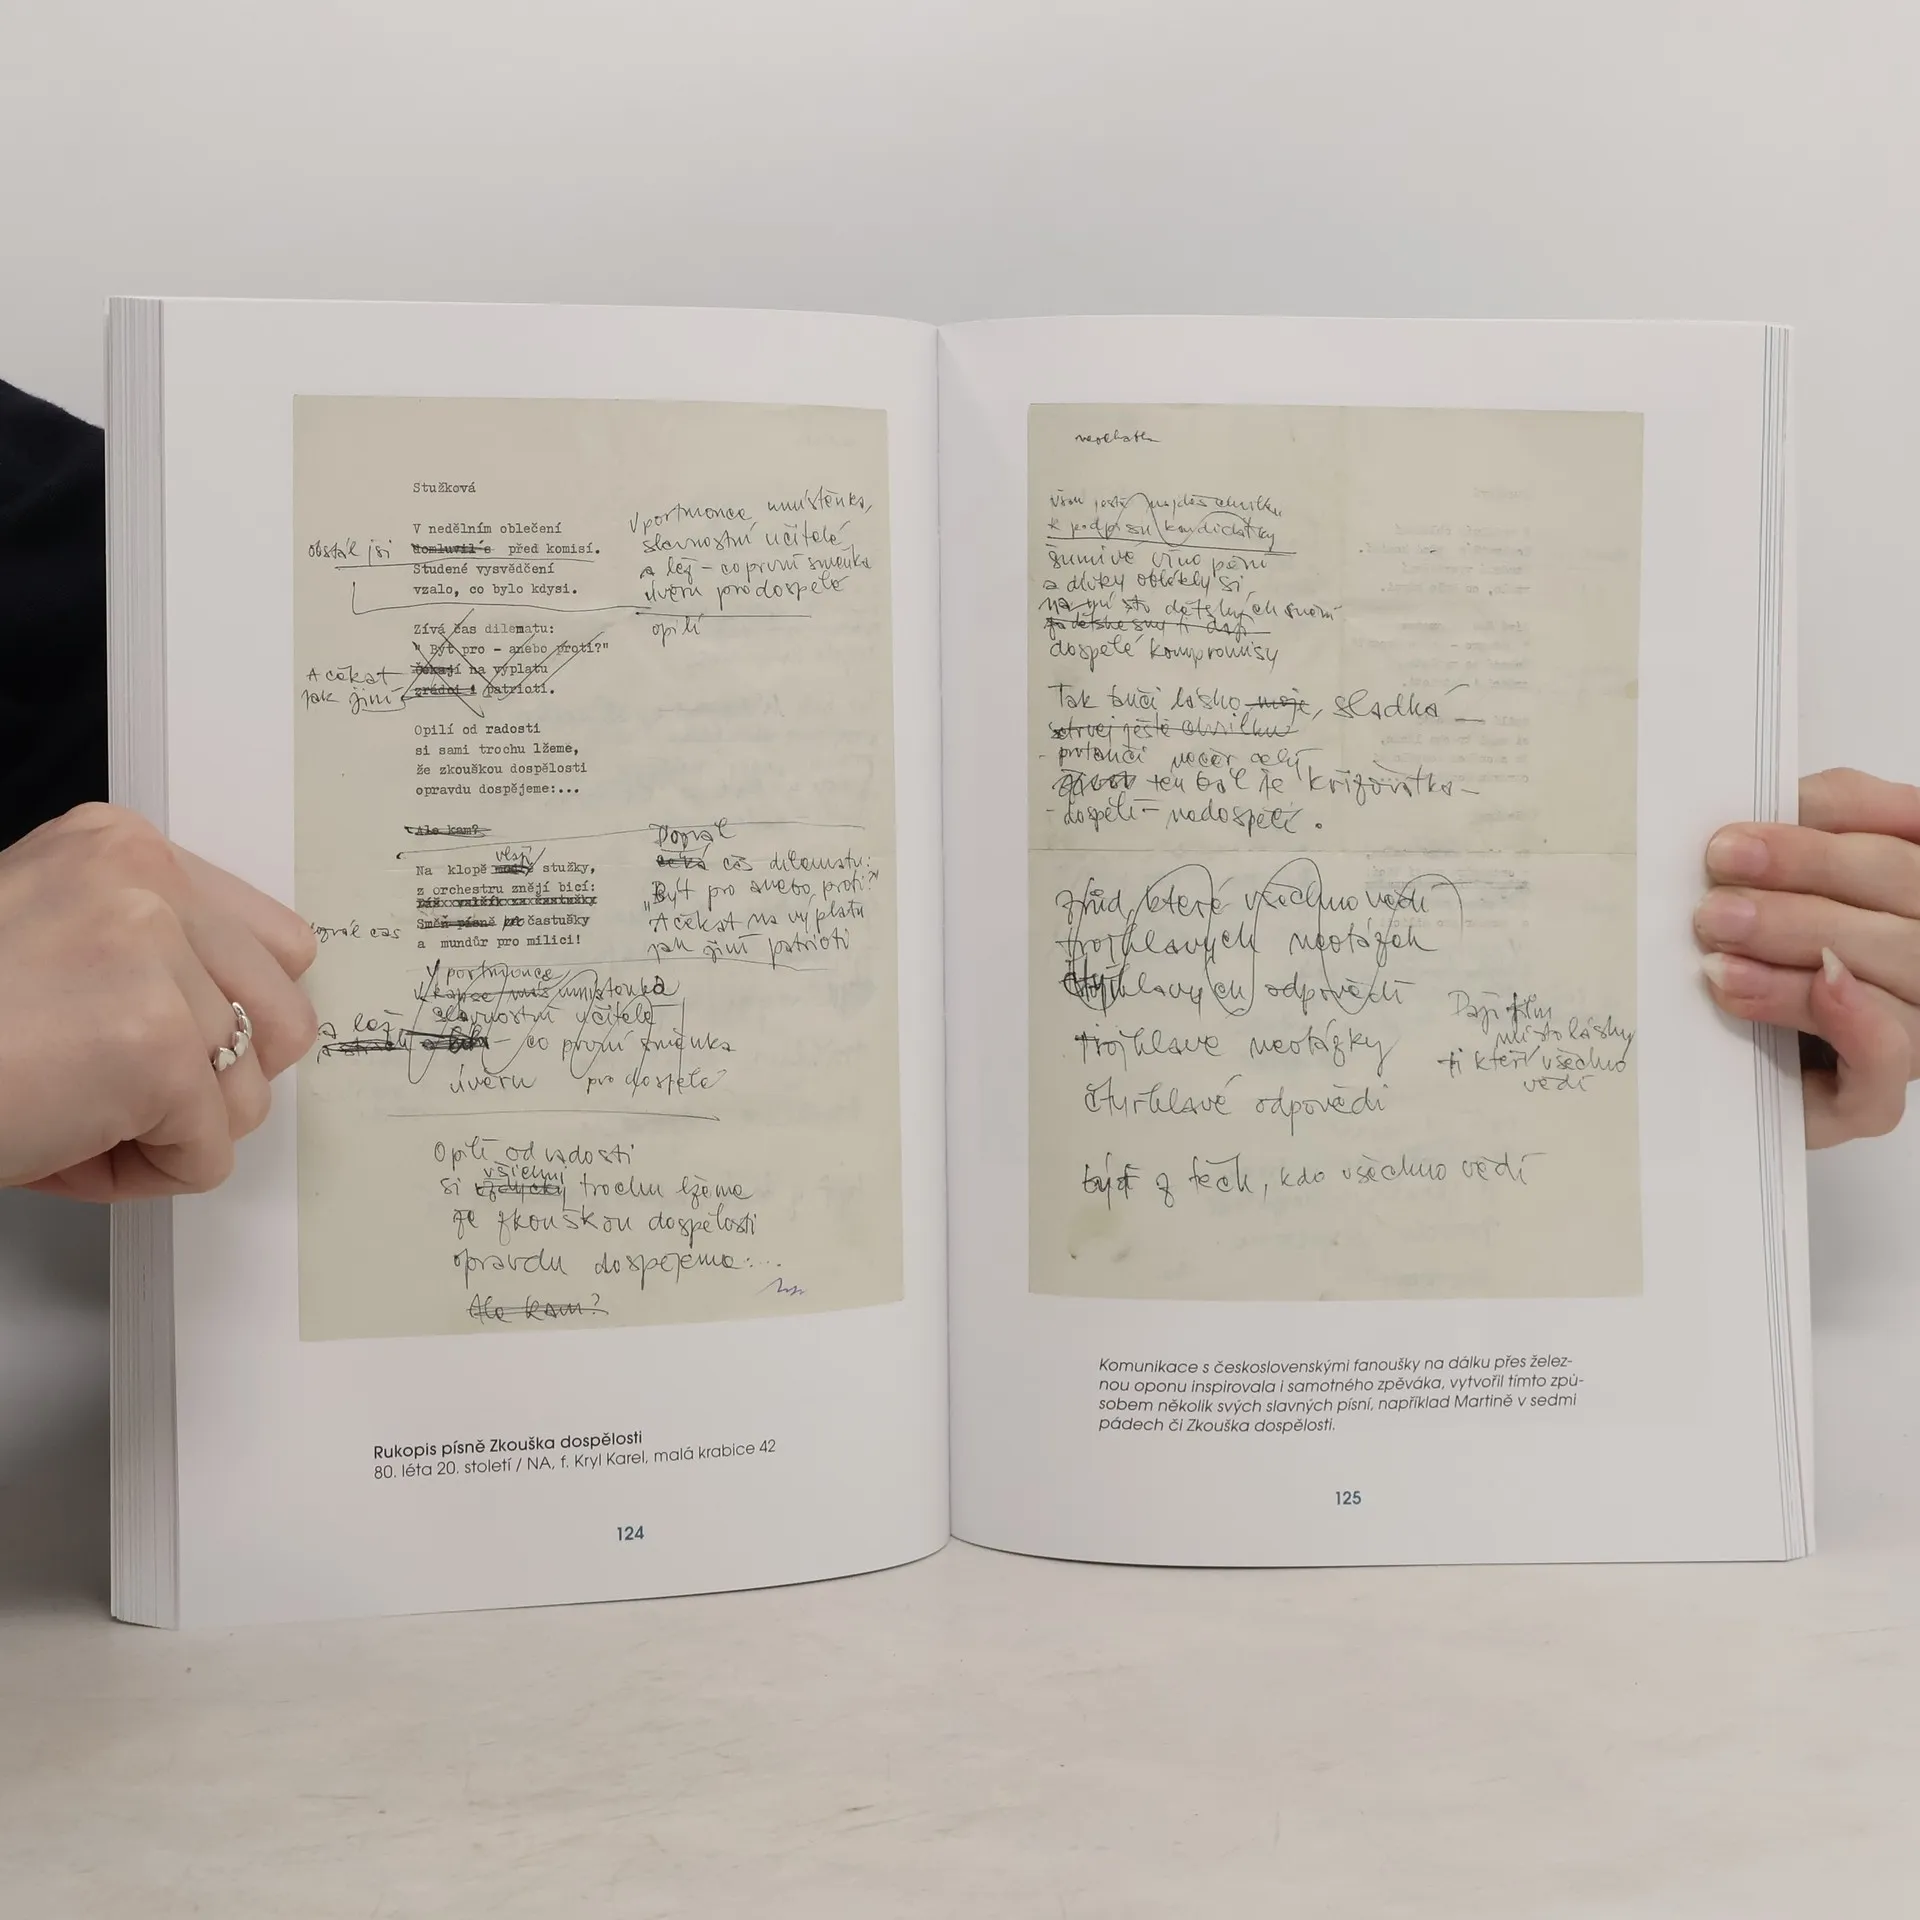 Stužková
V nedělním oblečení
obstál jsi domluvil's před komisí.
Studené vysvědčení
vzalo, co bylo kdysi.
V portmonce umístěnka,
slavnostní učitelé
a lež – co první směnka
úvěru pro dospělé
opilí
Zívá čas dilematu:
" Být pro - anebo proti?"
čekají na výplatu
zrádci i patrioti.
A čekat
jak jiní
Opilí od radosti
si sami trochu lžeme,
že zkouškou dospělosti
opravdu dospějeme:...
Ale kam?
Na klopě stužky,
z orchestru znějí bicí:
Směň písně častušky
a mundúr pro milici!
Dopral
čas dilematu:
„Být pro anebo proti?"
A čekat na výplatu
jak jiní patrioti
V portmonce
V kapse máš umístěnka
slavnostní učitelé
a lež – co první směnka
úvěru pro dospělé
Opilí od radosti
si vždycky všichni trochu lžeme
že zkouškou dospělosti
opravdu dospějeme:...
Ale kam?
Rukopis písně Zkouška dospělosti
80. léta 20. století / NA, f. Kryl Karel, malá krabice 42
124
k podpisu kandidátky
šumivé víno pění
a dívky oblékly si
místo dětských snění
dospělé kompromisy
Tak tanči lásko moje, sladká –
ještě chvilku
protanči večer celý
ten bál je křižovatka –
– dospělí – nedospělí.
zřůd, které všechno vědí
trojhlavých neotázek
odpovědí
trojhlavé neotázky
čtyřhlavé odpovědi
Dají
místo lásky
ti kteří všechno
vědí
být z těch, kdo všechno vědí
Komunikace s československými fanoušky na dálku přes želez-
nou oponu inspirovala i samotného zpěváka, vytvořil tímto způ-
sobem několik svých slavných písní, například Martině v sedmi
pádech či Zkouška dospělosti.
125